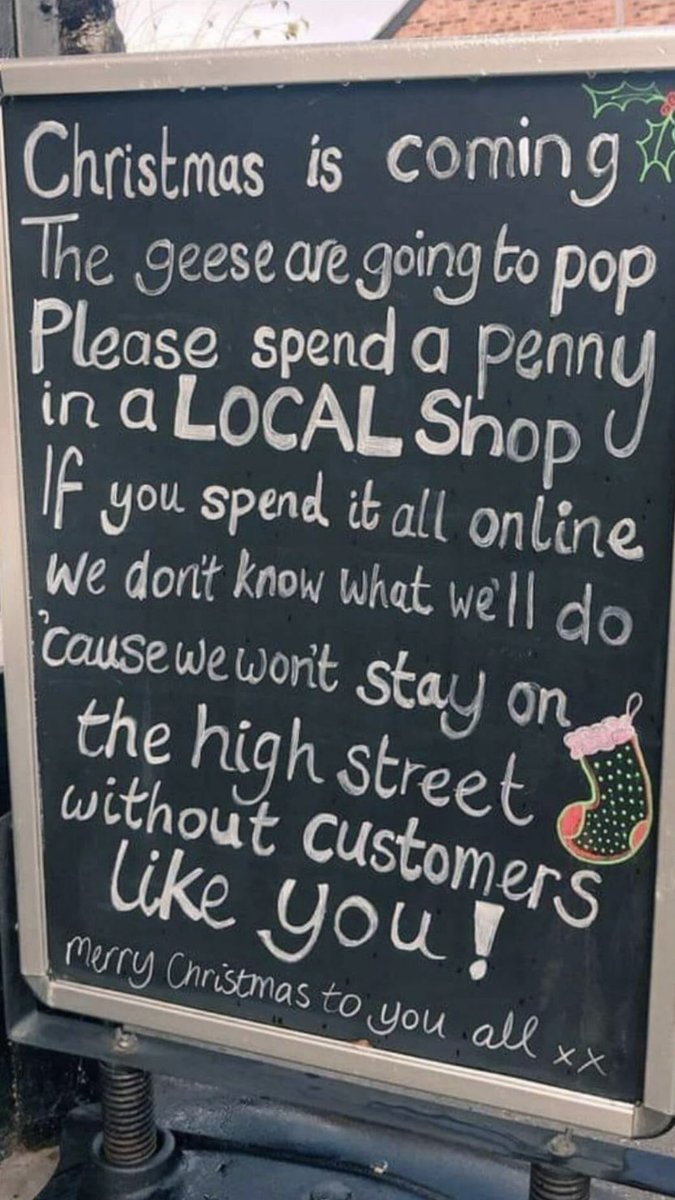 Christmas is coming
The geese are going to pop
Please spend a penny
in a LOCAL Shop
If you spend it all online
We don't know what we'll do
'cause we won't stay on
the high street
without customers
like you!
merry Christmas to you all xx